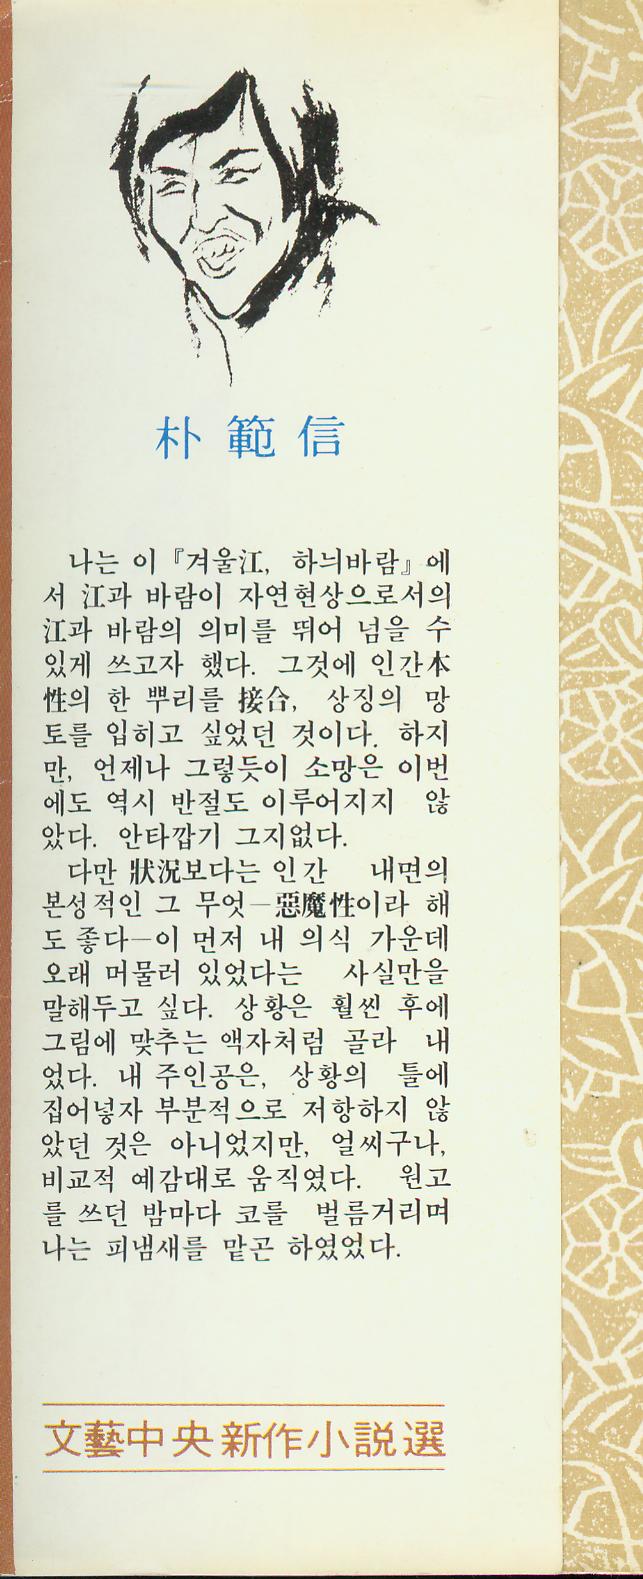 朴範信
나는 이 『겨울江, 하늬바람』에
서 江과 바람이 자연현상으로서의
江과 바람의 의미를 뛰어 넘을 수
있게 쓰고자 했다. 그것에 인간本
性의 한 뿌리를 接合, 상징의 망
토를 입히고 싶었던 것이다. 하지
만, 언제나 그렇듯이 소망은 이번
에도 역시 반절도 이루어지지 않
았다. 안타깝기 그지없다.
다만 狀況보다는 인간 내면의
본성적인 그 무엇—惡魔性이라 해
도 좋다—이 먼저 내 의식 가운데
오래 머물러 있었다는 사실만을
말해두고 싶다. 상황은 훨씬 후에
그림에 맞추는 액자처럼 골라 내
었다. 내 주인공은, 상황의 틀에
집어넣자 부분적으로 저항하지 않
았던 것은 아니었지만, 얼씨구나,
비교적 예감대로 움직였다. 원고
를 쓰던 밤마다 코를 벌름거리며
나는 피냄새를 맡곤 하였었다.
文藝中央新作小説選